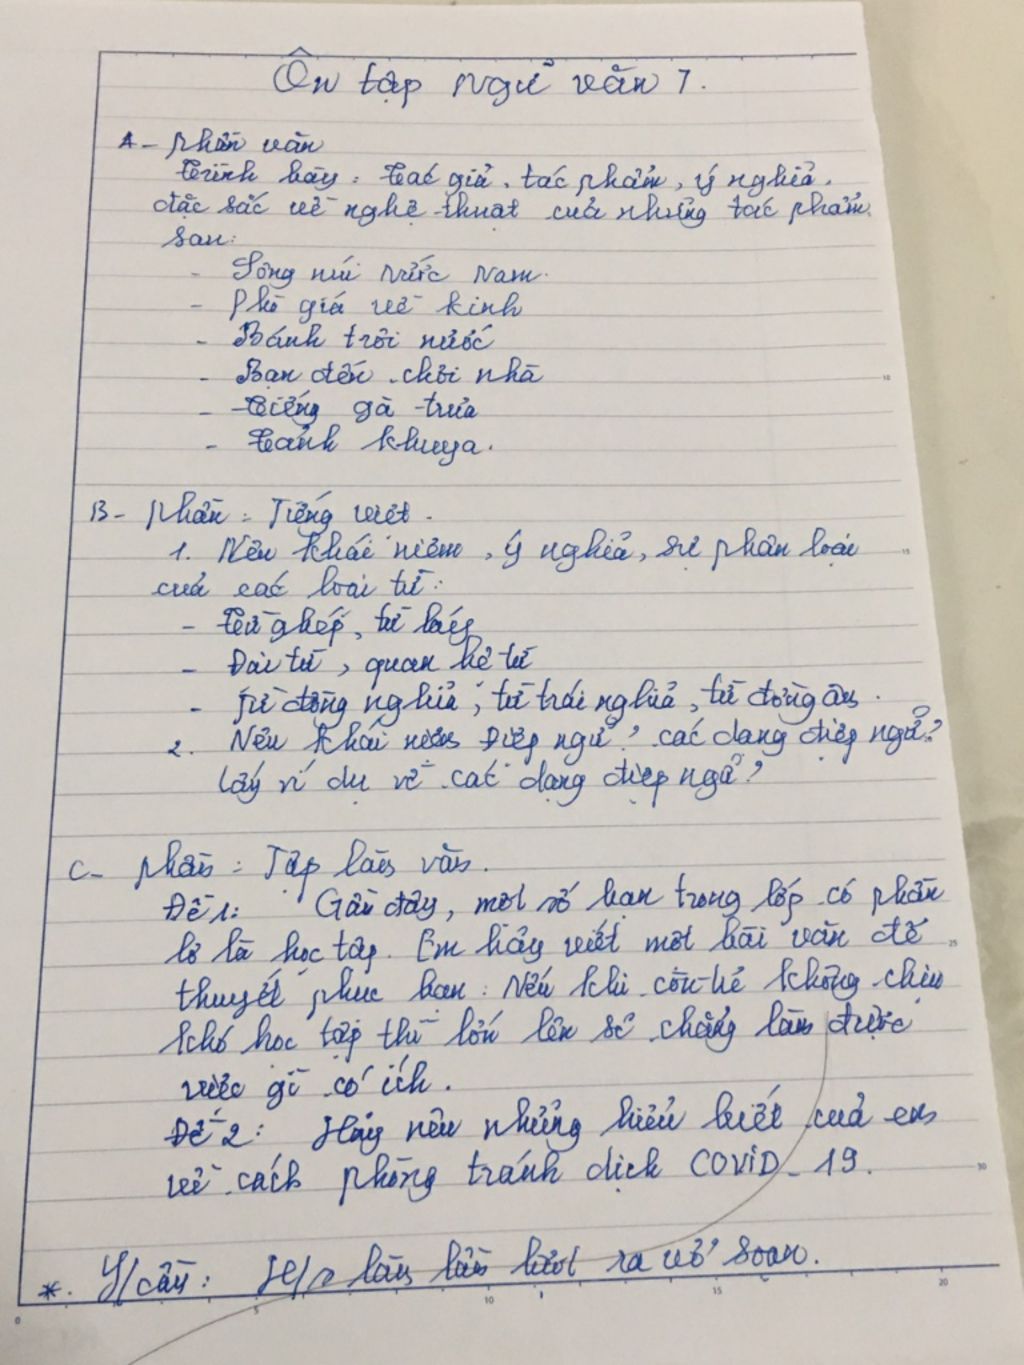 Ôn tập Ngữ văn 7.
A - Phần văn
Trình bày: Tác giả, tác phẩm, ý nghĩa,
đặc sắc về nghệ thuật của những tác phẩm
sau:
- Sông núi nước Nam.
- Phò giá về kinh
- Bánh trôi nước
- Bạn đến chơi nhà
- Tiếng gà trưa
- Cảnh khuya.
B - Phần: Tiếng việt.
1. Nêu khái niệm, ý nghĩa, sự phân loại
của các loại từ:
- Từ ghép, từ láy
- Đại từ, quan hệ từ
- Từ đồng nghĩa, từ trái nghĩa, từ đồng âm.
2. Nêu khái niệm Điệp ngữ? các dạng điệp ngữ?
lấy ví dụ về các dạng điệp ngữ?
C - Phần: Tập làm văn.
Đề 1: Gần đây, một số bạn trong lớp có phần
lơ là học tập. Em hãy viết một bài văn để
thuyết phục bạn: Nếu khi còn trẻ không chịu
khó học tập thì lớn lên sẽ chẳng làm được
việc gì có ích.
Đề 2: Hãy nêu những hiểu biết của em
về cách phòng tránh dịch COVID-19.
*. Y/cầu: H/s làm lần lượt ra vở soạn.
10
15
25
30
0
5
10
15
20